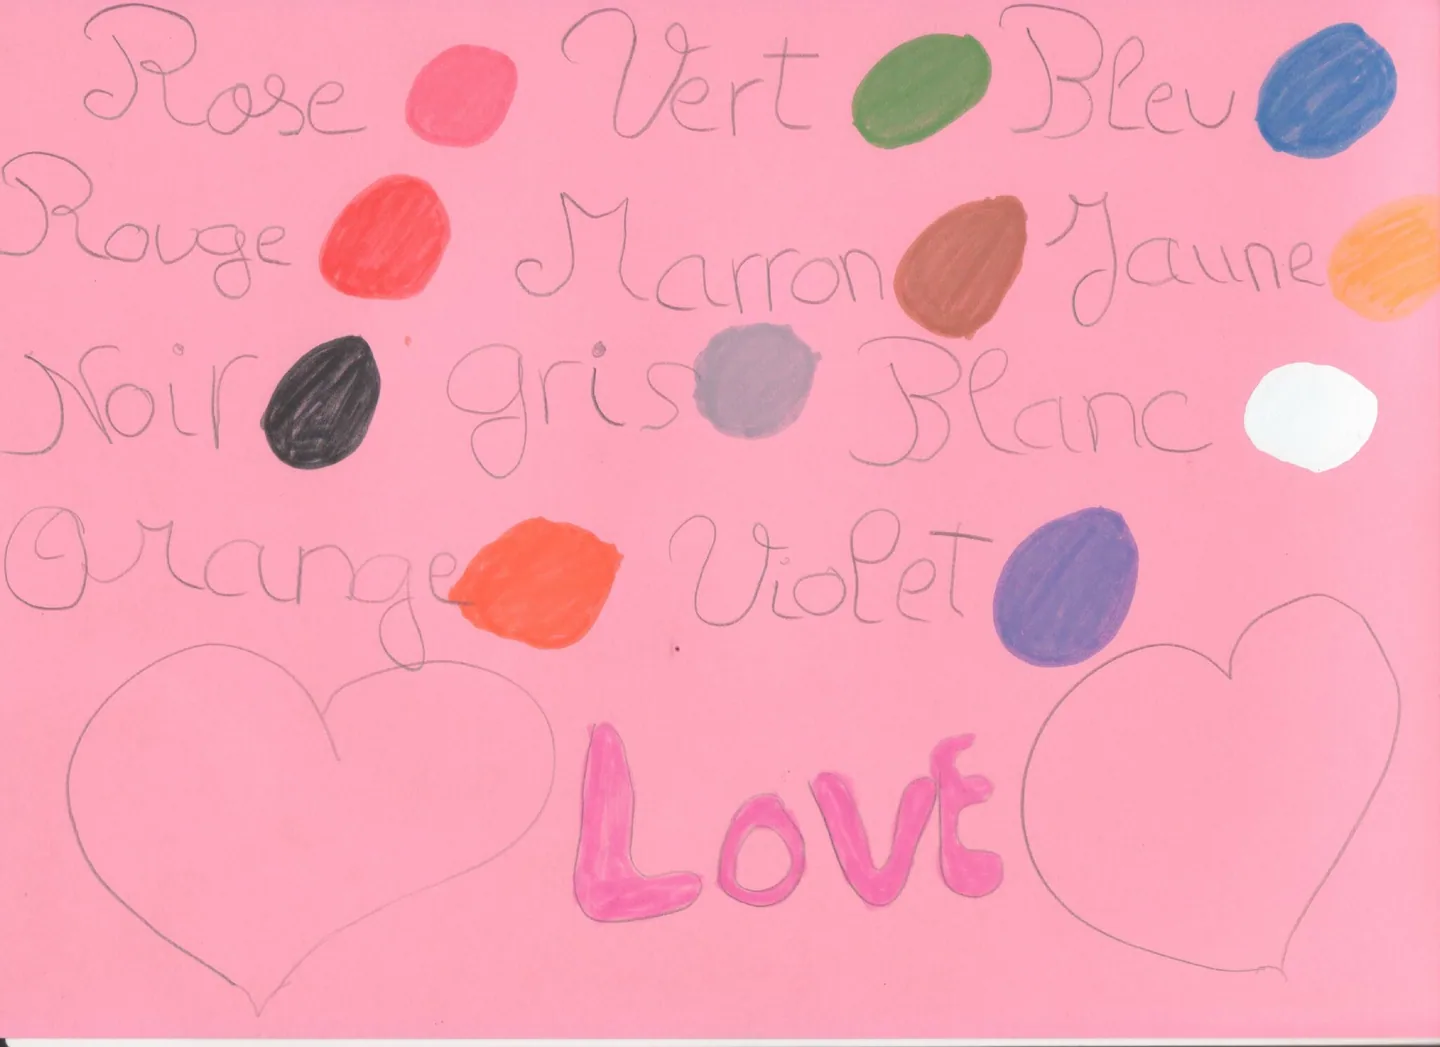 Rose Vert Bleu
Rouge Marron Jaune
Noir gris Blanc
Orange Violet
LOVE